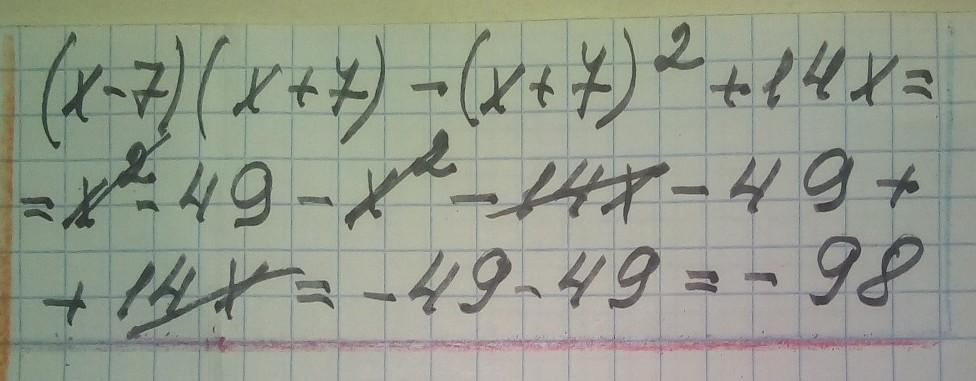 (x-7)(x+7)-(x+7)²+14x=
=x²-49-x²-14x-49+
+14x=-49-49=-98